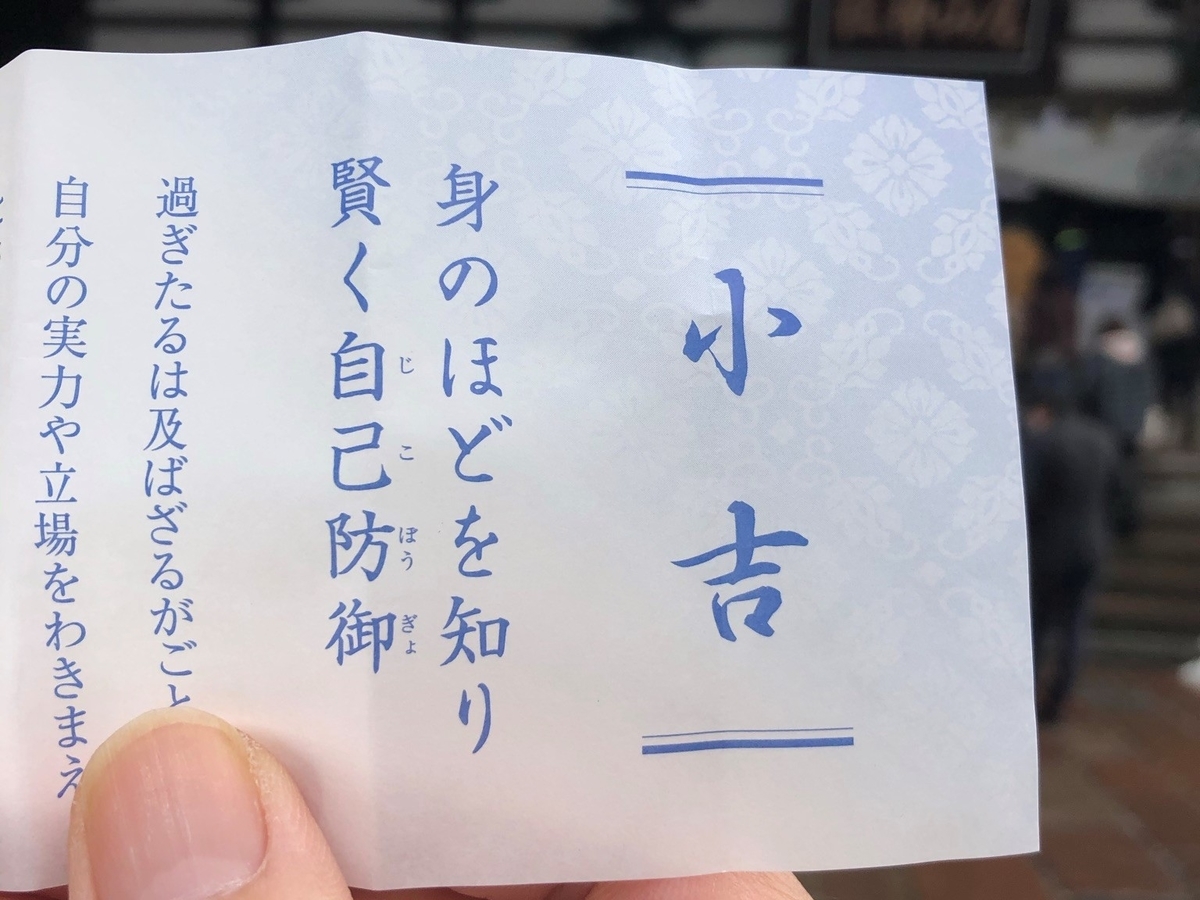 小吉
身のほどを知り
賢く自己防御
じこぼうぎょ
過ぎたるは及ばざるがごと
自分の実力や立場をわきまえ